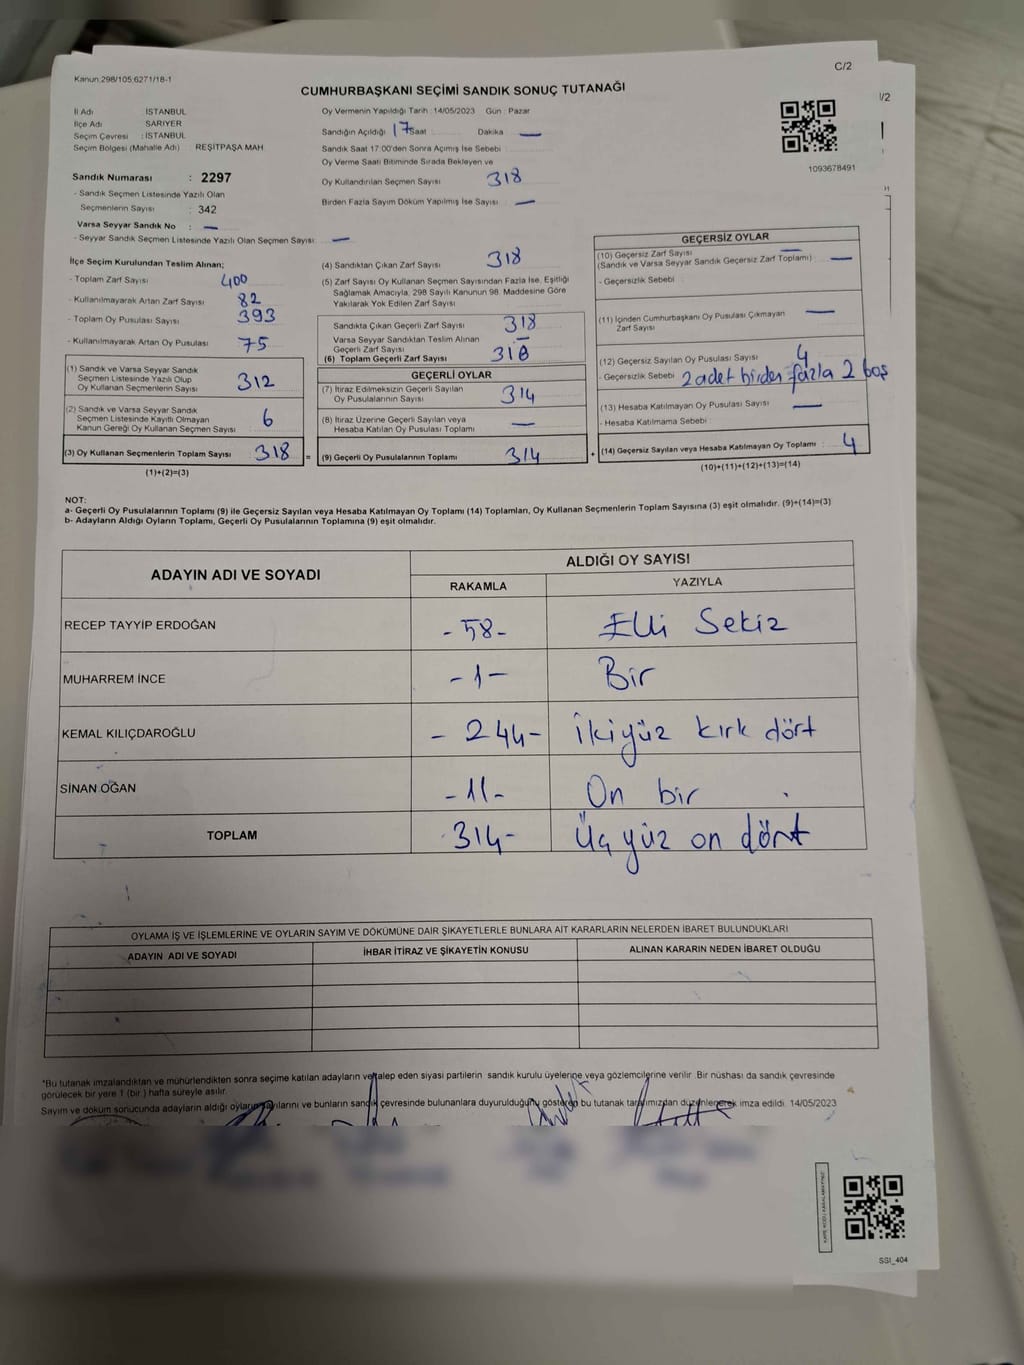 Kanun 298/105,6271/18-1
C/2
CUMHURBAŞKANI SEÇİMİ SANDIK SONUÇ TUTANAĞI
1/2
İl Adı İSTANBUL
İlçe Adı SARIYER
Seçim Çevresi : İSTANBUL
Seçim Bölgesi (Mahalle Adı) REŞİTPAŞA MAH
Sandık Numarası : 2297
- Sandık Seçmen Listesinde Yazılı Olan
Seçmenlerin Sayısı : 342
Varsa Seyyar Sandık No : —
- Seyyar Sandık Seçmen Listesinde Yazılı Olan Seçmen Sayısı: —
Oy Vermenin Yapıldığı Tarih : 14/05/2023 Gün : Pazar
Sandığın Açıldığı 17 Saat Dakika —
Sandık Saat 17:00'den Sonra Açımış İse Sebebi
Oy Verme Saati Bitiminde Sırada Bekleyen ve
Oy Kullandırılan Seçmen Sayısı 318
Birden Fazla Sayım Döküm Yapılmış İse Sayısı : —
1093678491
İlçe Seçim Kurulundan Teslim Alınan;
- Toplam Zarf Sayısı 400
- Kullanılmayarak Artan Zarf Sayısı 82
- Toplam Oy Pusulası Sayısı 393
- Kullanılmayarak Artan Oy Pusulası 75
(1) Sandık ve Varsa Seyyar Sandık
Seçmen Listesinde Yazılı Olup
Oy Kullanan Seçmenlerin Sayısı 312
(2) Sandık ve Varsa Seyyar Sandık
Seçmen Listesinde Kayıtlı Olmayan
Kanun Gereği Oy Kullanan Seçmen Sayısı 6
(3) Oy Kullanan Seçmenlerin Toplam Sayısı 318
(1)+(2)=(3)
(4) Sandıktan Çıkan Zarf Sayısı 318
(5) Zarf Sayısı Oy Kullanan Seçmen Sayısından Fazla İse, Eşitliği
Sağlamak Amacıyla, 298 Sayılı Kanunun 98. Maddesine Göre
Yakılarak Yok Edilen Zarf Sayısı
Sandıkta Çıkan Geçerli Zarf Sayısı 318
Varsa Seyyar Sandıktan Teslim Alınan
Geçerli Zarf Sayısı —
(6) Toplam Geçerli Zarf Sayısı 318
GEÇERLİ OYLAR
(7) İtiraz Edilmeksizin Geçerli Sayılan
Oy Pusulalarının Sayısı 314
(8) İtiraz Üzerine Geçerli Sayılan veya
Hesaba Katılan Oy Pusulası Toplamı —
= (9) Geçerli Oy Pusulalarının Toplamı 314
GEÇERSİZ OYLAR
(10) Geçersiz Zarf Sayısı —
(Sandık ve Varsa Seyyar Sandık Geçersiz Zarf Toplamı) —
- Geçersizlik Sebebi
(11) İçinden Cumhurbaşkanı Oy Pusulası Çıkmayan —
Zarf Sayısı
(12) Geçersiz Sayılan Oy Pusulası Sayısı 4
- Geçersizlik Sebebi 2 adet birden fazla 2 boş
(13) Hesaba Katılmayan Oy Pusulası Sayısı —
- Hesaba Katılmama Sebebi
+ (14) Geçersiz Sayılan veya Hesaba Katılmayan Oy Toplamı : 4
(10)+(11)+(12)+(13)=(14)
NOT:
a- Geçerli Oy Pusulalarının Toplamı (9) ile Geçersiz Sayılan veya Hesaba Katılmayan Oy Toplamı (14) Toplamları, Oy Kullanan Seçmenlerin Toplam Sayısına (3) eşit olmalıdır. (9)+(14)=(3)
b- Adayların Aldığı Oyların Toplamı, Geçerli Oy Pusulalarının Toplamına (9) eşit olmalıdır.
ADAYIN ADI VE SOYADI
ALDIĞI OY SAYISI
RAKAMLA YAZIYLA
RECEP TAYYİP ERDOĞAN -58- Elli Sekiz
MUHARREM İNCE -1- Bir
KEMAL KILIÇDAROĞLU -244- İkiyüz kırk dört
SİNAN OĞAN -11- On bir
TOPLAM 314- Üçyüz on dört
OYLAMA İŞ VE İŞLEMLERİNE VE OYLARIN SAYIM VE DÖKÜMÜNE DAİR ŞİKAYETLERLE BUNLARA AİT KARARLARIN NELERDEN İBARET BULUNDUKLARI
ADAYIN ADI VE SOYADI İHBAR İTİRAZ VE ŞİKAYETİN KONUSU ALINAN KARARIN NEDEN İBARET OLDUĞU
*Bu tutanak imzalandıktan ve mühürlendikten sonra seçime katılan adayların ve talep eden siyasi partilerin sandık kurulu üyelerine veya gözlemcilerine verilir. Bir nüshası da sandık çevresinde
görülecek bir yere 1 (bir ) hafta süreyle asılır.
Sayım ve döküm sonucunda adayların aldığı oyların sayılarını ve bunların sandık çevresinde bulunanlara duyurulduğunu gösteren bu tutanak tarafımızdan düzenlenerek imza edildi. 14/05/2023
SSI_404